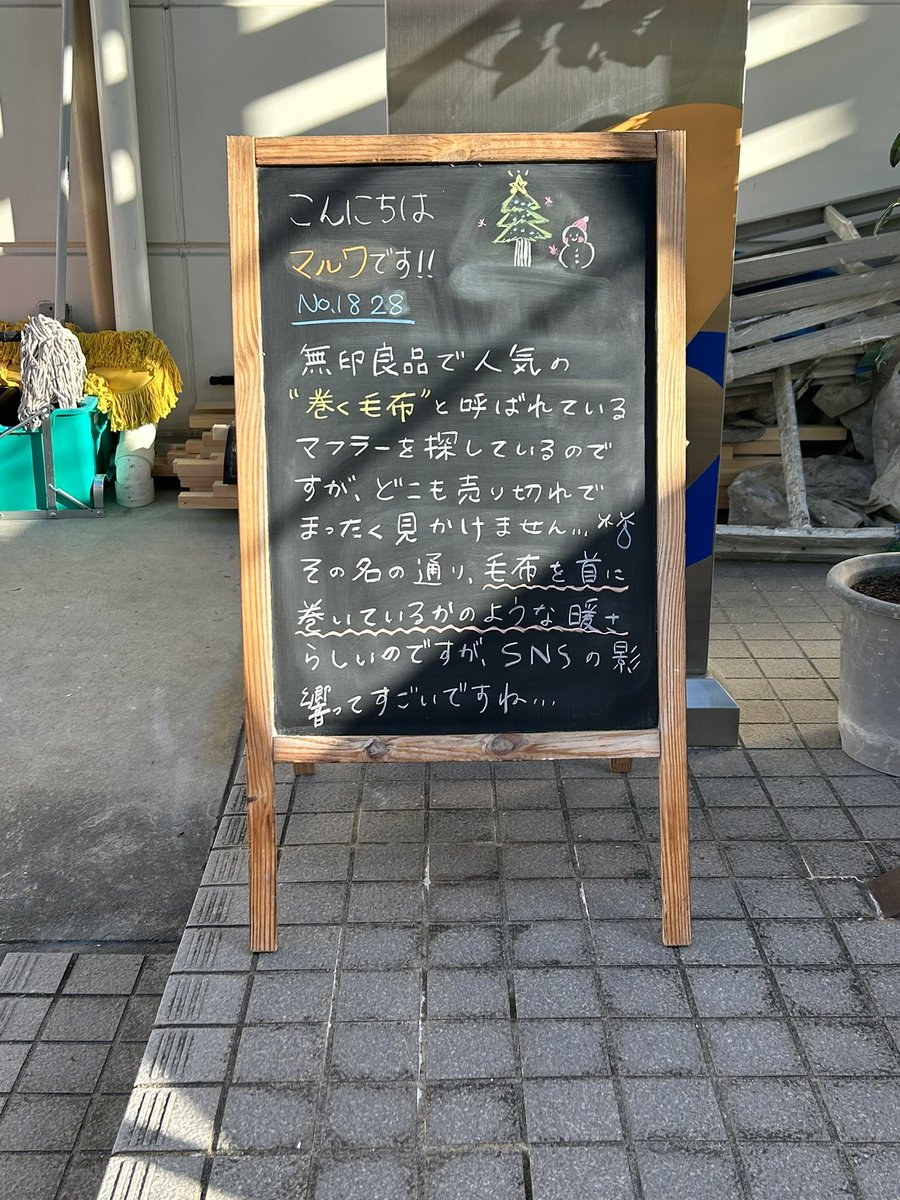 こんにちは
マルワです!!
No.1828
無印良品で人気の
"巻く毛布"と呼ばれている
マフラーを探しているので
すが、どこも売り切れで
まったく見かけません…
その名の通り、毛布を首に
巻いているかのような暖+
らしいのですが、SNSの影
響ってすごいですね…